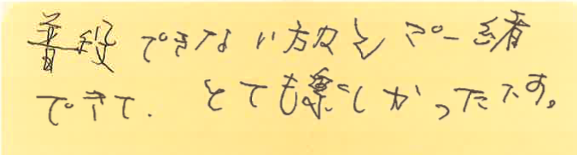 普段できない方々とご一緒
できて、とても楽しかったです。